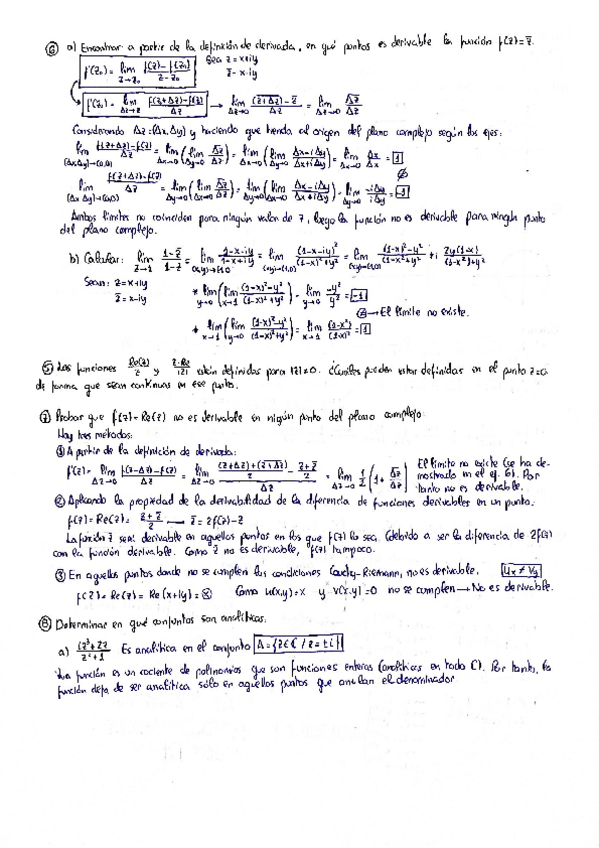 ⑥ a) Encontrar a partir de la definición de derivada, en qué puntos es derivable la función f(z)=z̄.
f'(z₀) = lim_{z→z₀} (f(z)-f(z₀))/(z-z₀) Sea z = x+iy
z̄ = x-iy
f'(z₀) = lim_{Δz→0} (f(z+Δz)-f(z))/Δz → lim_{Δz→0} ((z̄+Δz̄)-z̄)/Δz = lim_{Δz→0} Δz̄/Δz
Considerando Δz=(Δx,Δy) y haciendo que tienda al origen del plano complejo según los ejes:
lim_{(Δx,Δy)→(0,0)} (f(z+Δz)-f(z))/Δz = lim_{Δx→0}(lim_{Δy→0} Δz̄/Δz) = lim_{Δx→0}(lim_{Δy→0} (Δx-iΔy)/(Δx+iΔy)) = lim_{Δx→0} Δx/Δx = 1
lim_{(Δx,Δy)→(0,0)} (f(z+Δz)-f(z))/Δz = lim_{Δy→0}(lim_{Δx→0} Δz̄/Δz) = lim_{Δy→0}(lim_{Δx→0} (Δx-iΔy)/(Δx+iΔy)) = lim_{Δy→0} -iΔy/iΔy = -1
Ambos límites no coinciden para ningún valor de z, luego la función no es derivable para ningún punto
del plano complejo.
b) Calcular: lim_{z→1} (1-z̄)/(1-z) = lim_{(x,y)→(1,0)} (1-x-iy)/(1-x+iy) = lim_{(x,y)→(1,0)} (1-x-iy)²/((1-x)²+y²) = lim_{(x,y)→(1,0)} ((1-x)²-y²)/((1-x)²+y²) + i 2y(1-x)/((1-x)²+y²)
Sean: z = x+iy
z̄ = x-iy
* lim_{y→0}(lim_{x→1} ((1-x)²-y²)/((1-x)²+y²)) = lim_{y→0} -y²/y² = -1
→ El límite no existe.
* lim_{x→1}(lim_{y→0} ((1-x)²-y²)/((1-x)²+y²)) = lim_{x→1} (1-x)²/(1-x)² = 1
⑤ Las funciones Re(z)/z y z·Re/|z| están definidas para |z|≠0. ¿Cuáles pueden estar definidas en el punto z=0
de forma que sean continuas en ese punto.
⑦ Probar que f(z)=Re(z) no es derivable en ningún punto del plano complejo.
Hay tres métodos:
① A partir de la definición de derivada:
f'(z) = lim_{Δz→0} (f(z-Δz)-f(z))/Δz = lim_{Δz→0} (((z+Δz)+(z̄+Δz̄))/2 - (z+z̄)/2)/Δz = lim_{Δz→0} 1/2 (1+Δz̄/Δz) El límite no existe (se ha de-
mostrado en el ej. 6). Por
tanto no es derivable.
② Aplicando la propiedad de la derivabilidad de la diferencia de funciones derivables en un punto.
f(z) = Re(z) = (z+z̄)/2 → z̄ = 2f(z)-z
La función z̄ será derivable en aquellos puntos en los que f(z) lo sea, (debido a ser la diferencia de 2f(z)
con la función derivable. Como z̄ no es derivable, f(z) tampoco.
③ En aquellos puntos donde no se cumplen las condiciones Cauchy-Riemann, no es derivable. Ux ≠ Vy
f(z) = Re(z) = Re(x+iy) = x Como u(x,y)=x y v(x,y)=0 no se cumplen → No es derivable.
⑧ Determinar en qué conjuntos son analíticas.
a) (z³+2z)/(z²+1) Es analítica en el conjunto A={z∈ℂ / z≠±i}
La función es un cociente de polinomios que son funciones enteras (analíticas en todo ℂ). Por tanto, la
función deja de ser analítica sólo en aquellos puntos que anulan el denominador